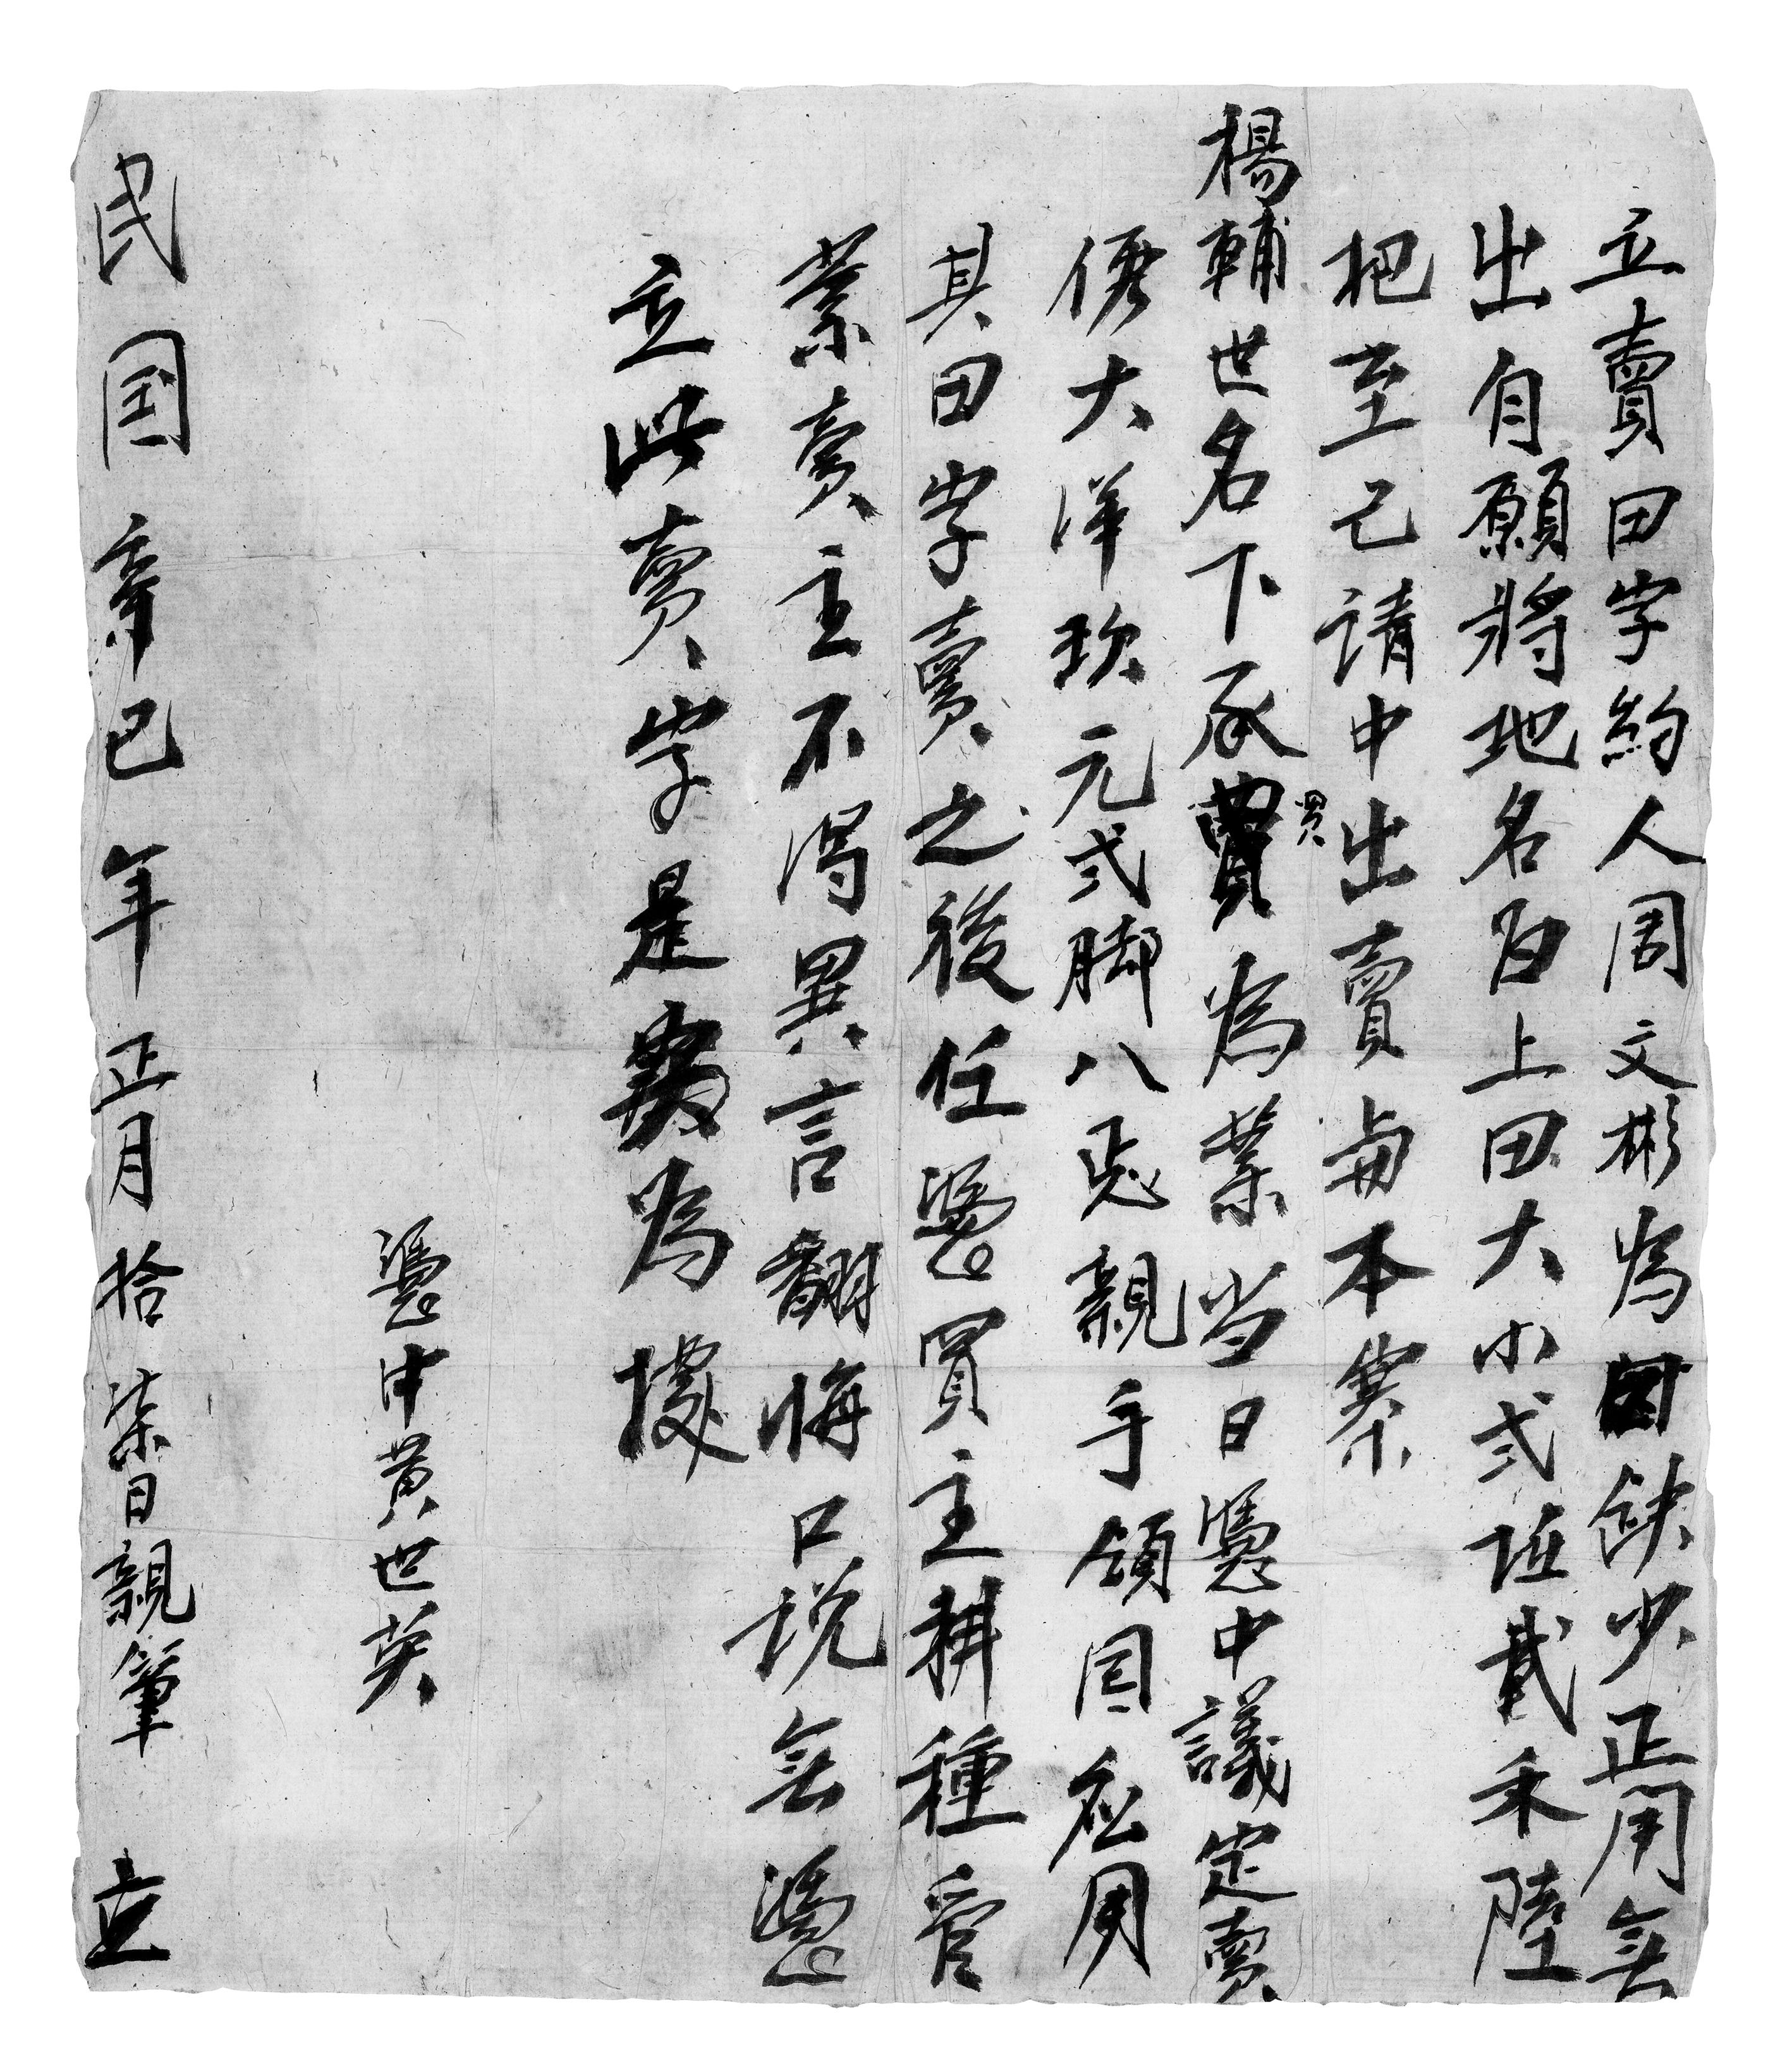 立賣田字約人周文彬為因缺少正用無
出自願將地名白上田大小弍坵載禾陸
把至己请中出賣与本寨
楊輔世名下承買為業当日憑中議定賣
價大洋玖元弍脚八毛親手領囘应用
其田字賣之後任憑買主耕種管
業賣主不淂異言翻悔口説無憑
立此賣字是為據
憑中黄世英
民国辛巳年正月拾柒日親筆 立